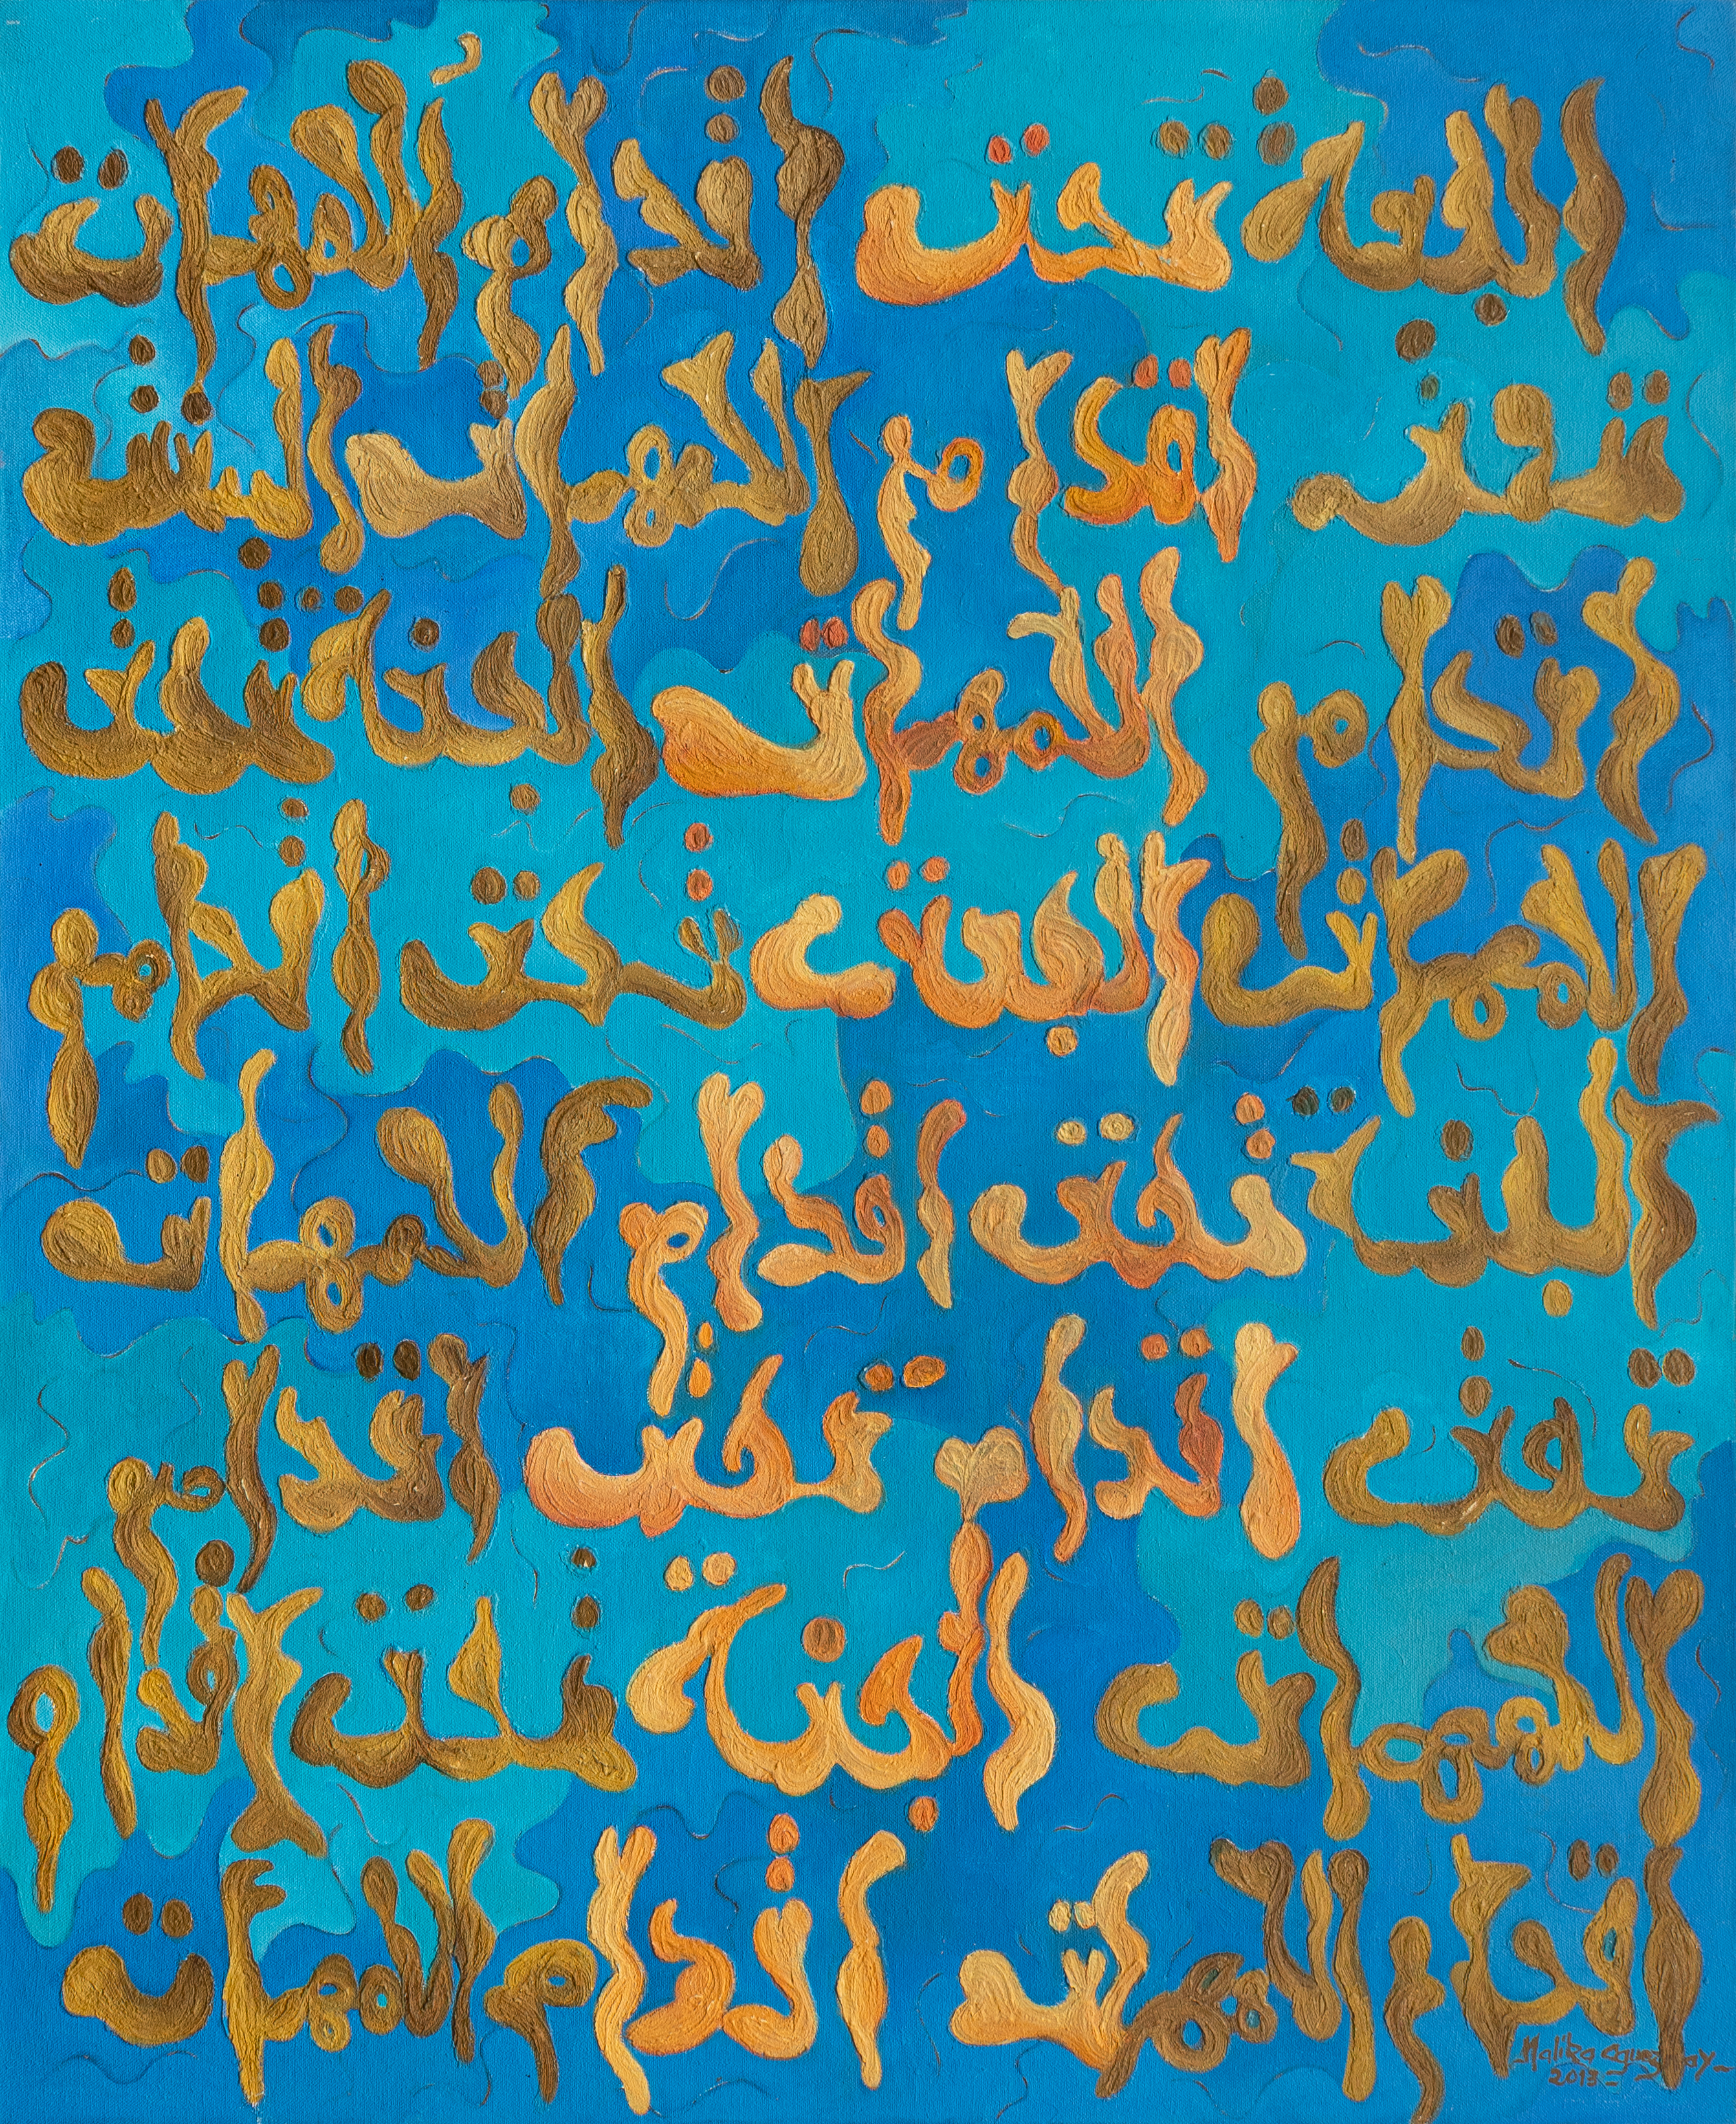 الجنة تحت اقدام الامهات
تحت اقدام الامهات
اقدام الامهات الجنة تحت
الامهات الجنة تحت اقدام
الجنة تحت اقدام الامهات
تحت اقدام تحت اقدام
الامهات الجنة تحت اقدام
اقدام الامهات اقدام الامهات
Malika Agueznay
2013